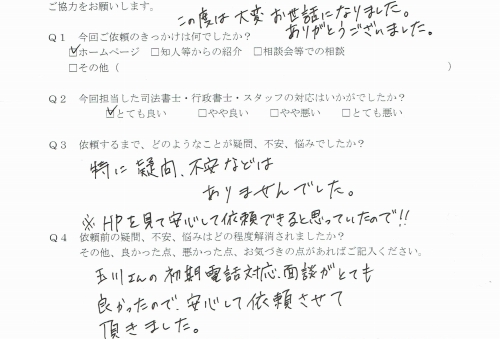 ご協力をお願いします。
この度は大変お世話になりました。
ありがとうございました。
Q1 今回ご依頼のきっかけは何でしたか?
☑ホームページ □知人等からの紹介 □相談会等での相談
□その他( )
Q2 今回担当した司法書士・行政書士・スタッフの対応はいかがでしたか?
☑とても良い □やや良い □やや悪い □とても悪い
Q3 依頼するまで、どのようなことが疑問、不安、悩みでしたか?
特に疑問、不安などは
ありませんでした。
※HPを見て安心して依頼できると思っていたので!!
Q4 依頼前の疑問、不安、悩みはどの程度解消されましたか?
その他、良かった点、悪かった点、お気づきの点があればご記入ください。
玉川さんの初期電話対応、面談がとても
良かったので、安心して依頼させて
頂きました。